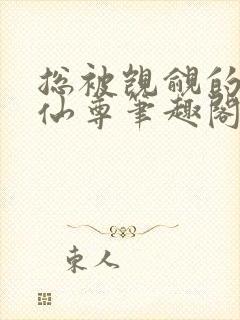 总被觊觎的
仙尊笔趣阁
东人